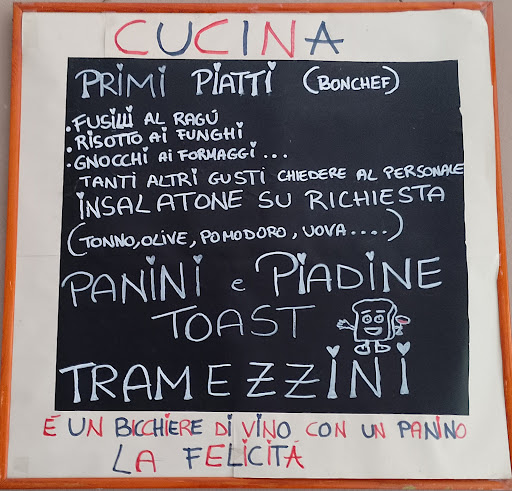 CUCINA
PRIMI PIATTI (BONCHEF)
• FUSILLI AL RAGÚ
• RISOTTO AI FUNGHI
• GNOCCHI AI FORMAGGI ...
TANTI ALTRI GUSTI CHIEDERE AL PERSONALE
INSALATONE SU RICHIESTA
(TONNO, OLIVE, POMODORO, UOVA ....)
PANINI e PIADINE
TOAST
TRAMEZZINI
É UN BICCHIERE DI VINO CON UN PANINO
LA FELICITÁ